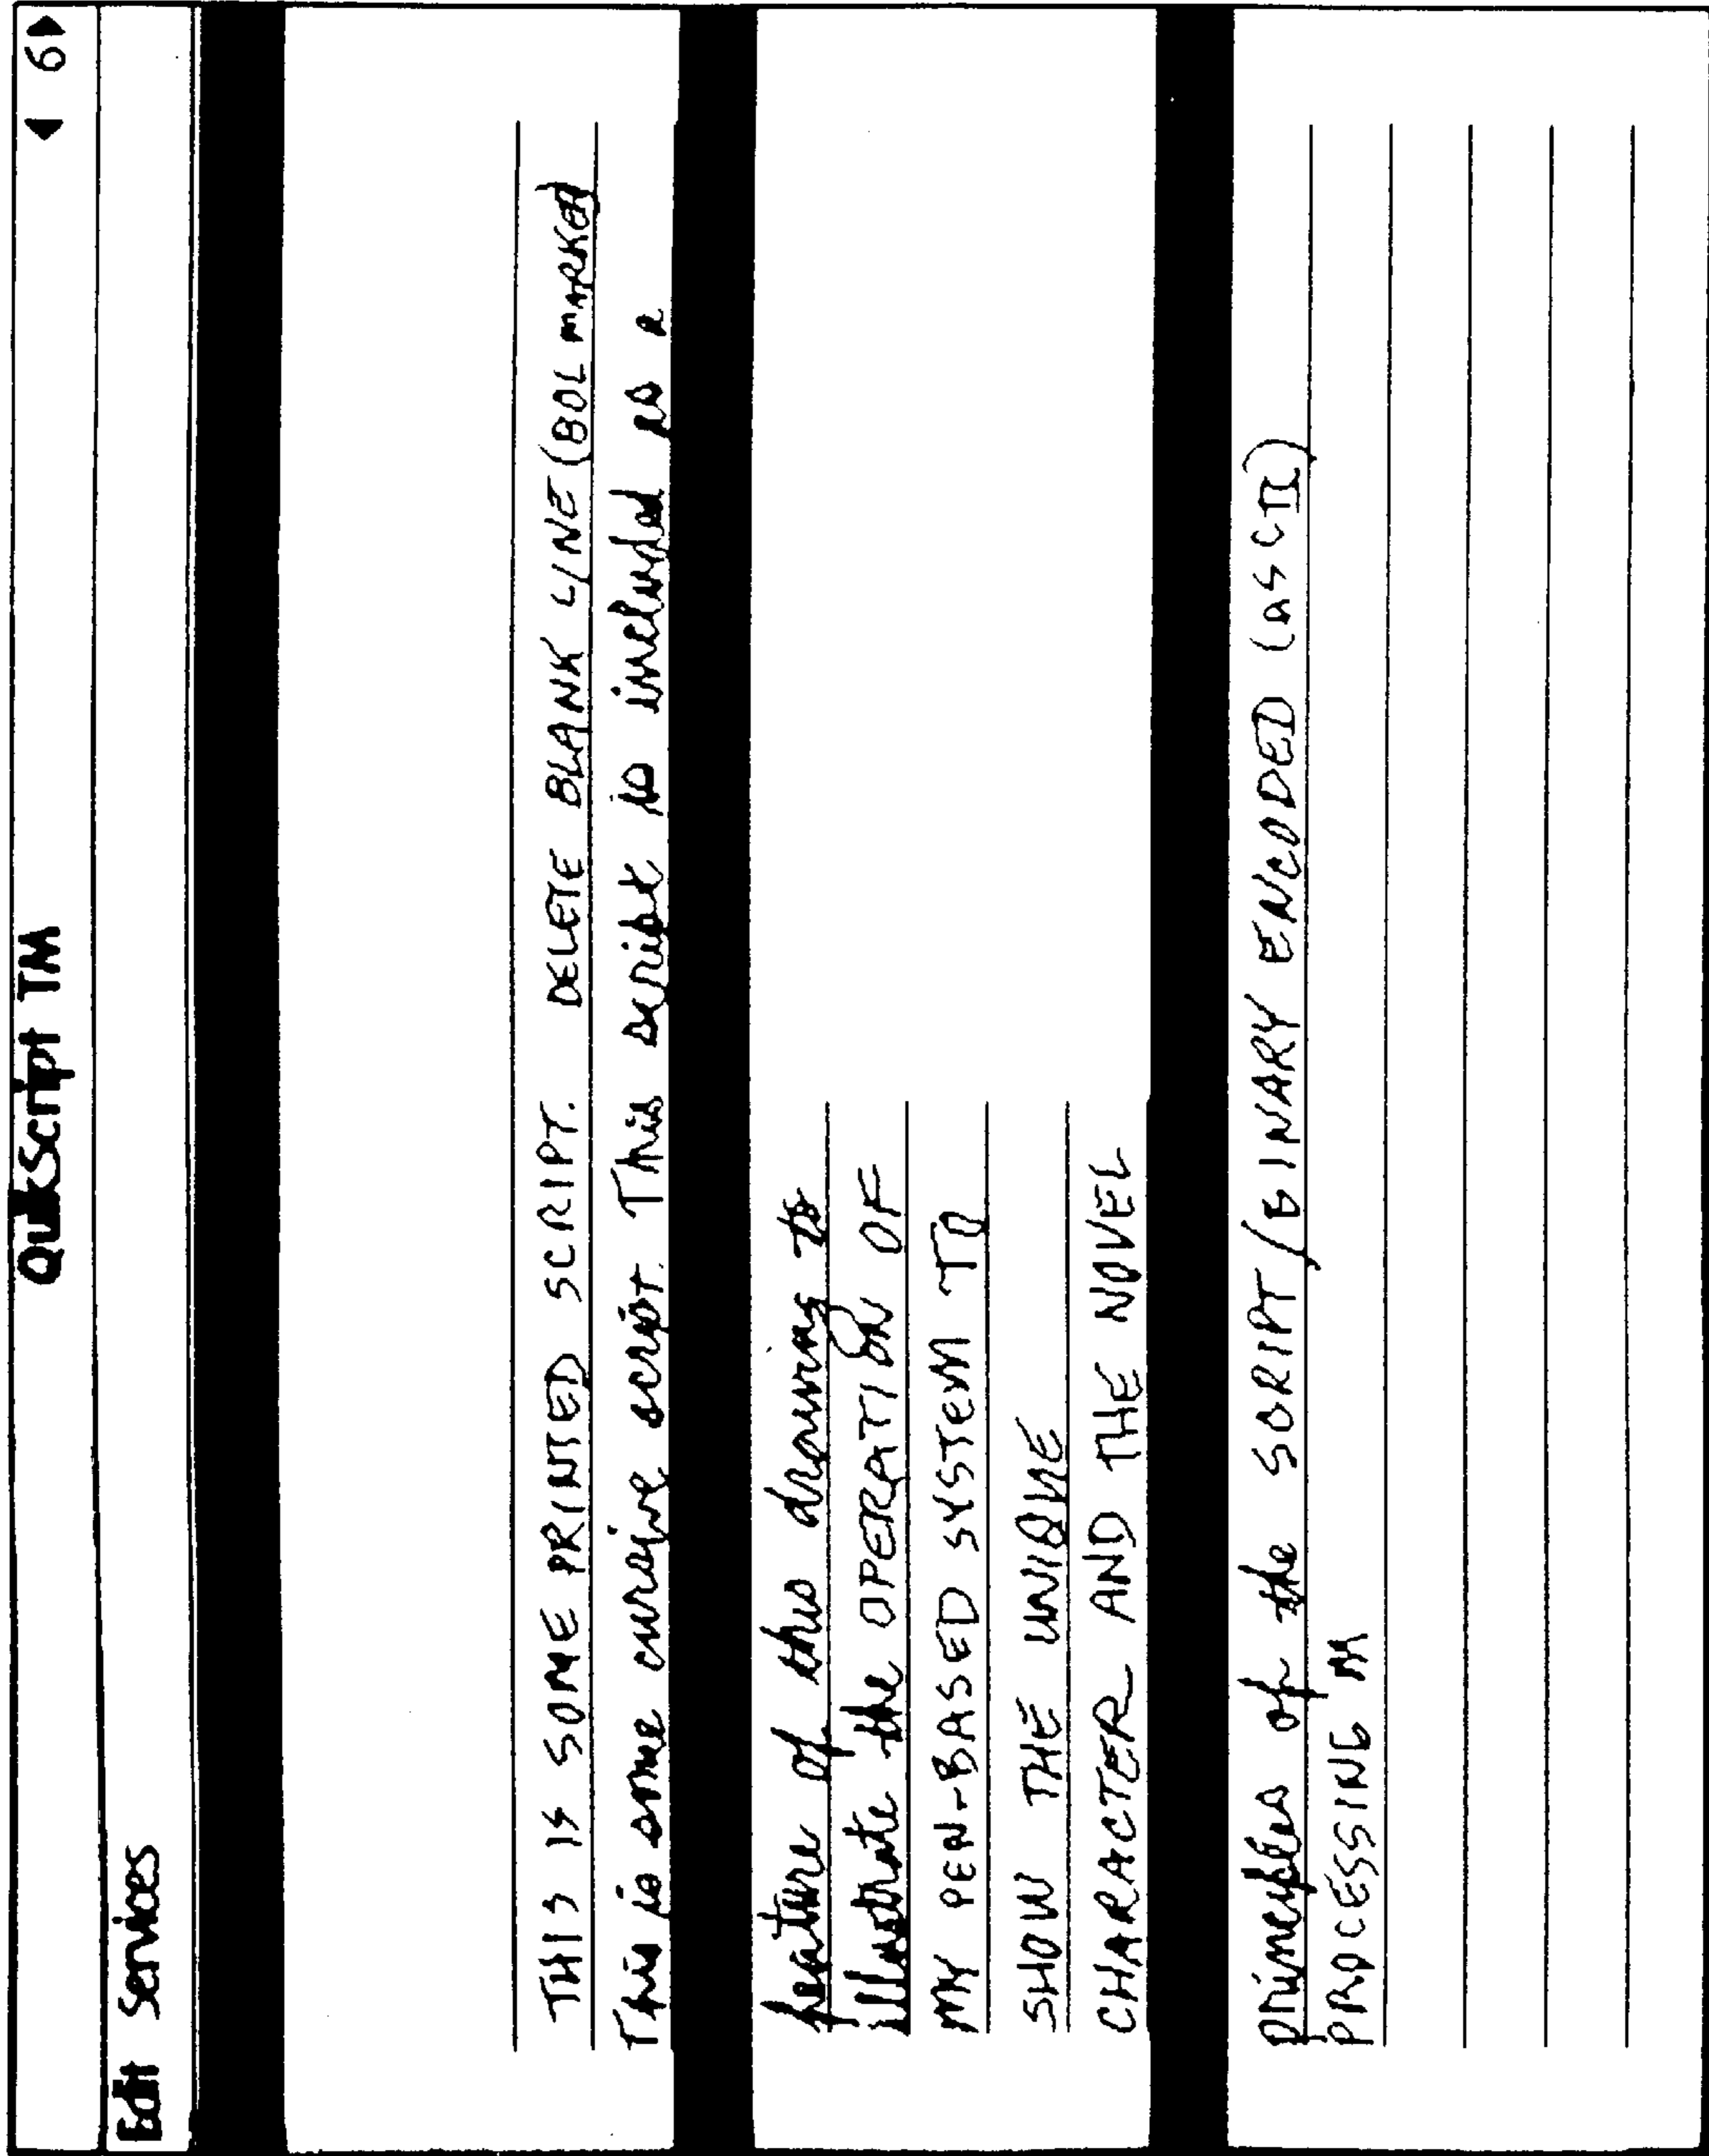 QuikScript TM
◀ 6▶
Edit Services
THIS IS SOME PRINTED SCRIPT. DELETE BLANK LINE (BOL MARKER)
This is some cursive script. This script is included as a
feature of this drawing to
illustrate the OPERATION OF
MY PEN-BASED SYSTEM TO
SHOW THE UNIQUE
CHARACTER AND THE NOVEL
principles of the SCRIPT/BINARY ENCODED (ASCII)
PROCESSING M